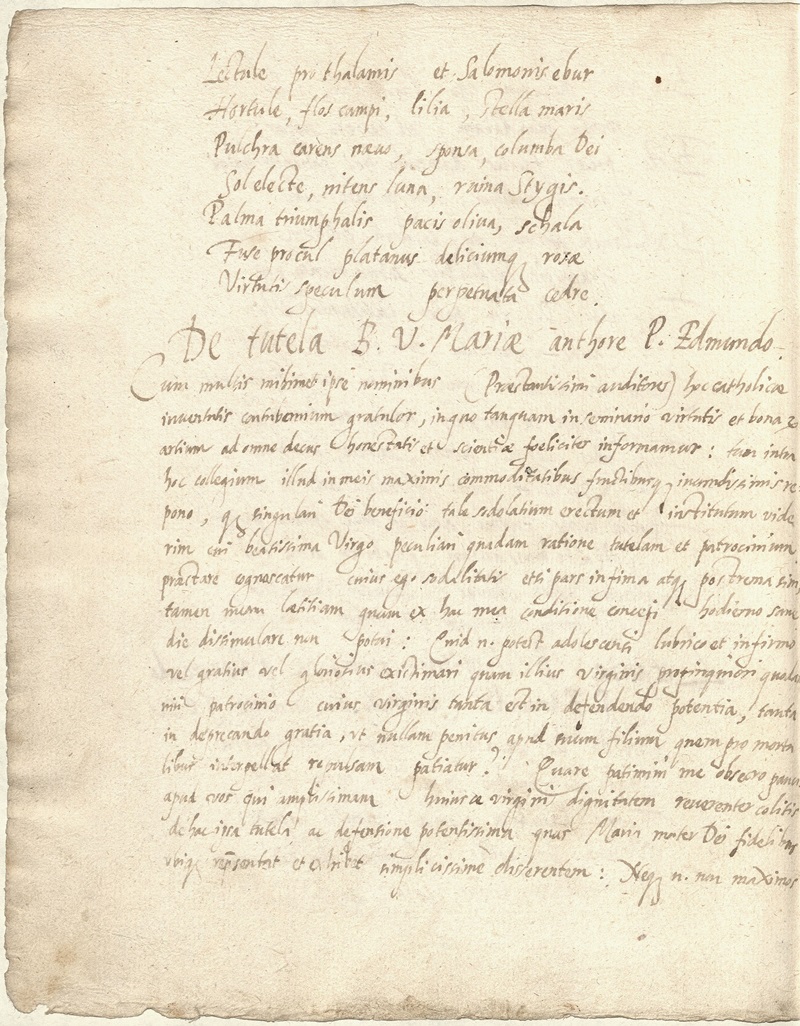 Lectule pro thalamis et Salomonis ebur
Hortule, flos campi, lilia, stella maris
Pulchra carens næuo, sponsa, columba Dei
Sol electe, nitens luna, ruina Stygis.
Palma triumphalis pacis oliua, schala
Fuse procul platanus deliciumq rosæ
Virtutis speculum perpetuata cedre.
De tutela B. V. Mariæ authore P. Edmundo.
Cum multis mihimet ipse nominibus (Præstantissimi auditores) hoc catholicæ
iuuentutis contubernium gratulor, in quo tanquam in seminario virtutis et bonar
artium ad omne decus honestatis et scientiæ foeliciter informamur: tum intra
hoc collegium illud in meis maximis commoditatibus fructibusq iucundissimis re-
pono, q singulari Dei beneficio tale sodalitium erectum et institutum vide
rim cui beatissima Virgo peculiari quadam ratione tutelam et patrocinium
præstare cognoscatur cuius ego sodalitatis etsi pars infima atq postrema sim,
tamen meam lætitiam quam ex hac mea conditione concepi hodierno sane
die dissimulare non potui: Quid n. potest adolescenti lubrico et infirmo
vel gratius vel gloriosius existimari quam illius virginis propinquiori quada
niti patrocinio cuius virginis tanta est in defendendo potentia, tanta
in deprecando gratia, vt nullam penitus apud suum filium quem pro morta
libus interpellat repulsam patiatur? Quare patimini me obsecro pauca
apud vos qui amplissimam huiusce virginis dignitatem reuerenter colitis
de hac ipsa tutela ac defensione potentissima quas Maria mater Dei fidelibus
vbiq et exhibet simplicissime disserentem: Neq n. non maximos